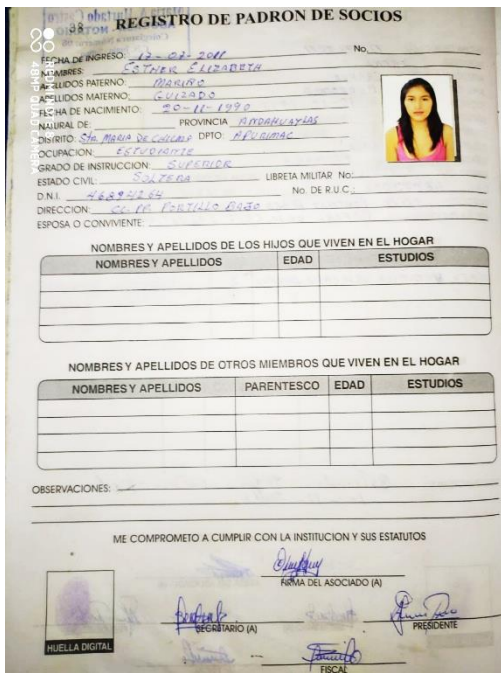 38
REGISTRO DE PADRON DE SOCIOS
FECHA DE INGRESO: 17-07-2011 No.
NOMBRES: ESTHER ELIZABETH
APELLIDOS PATERNO: MARIÑO
APELLIDOS MATERNO: GUIZADO
FECHA DE NACIMIENTO: 20-11-1990
NATURAL DE: PROVINCIA ANDAHUAYLAS
DISTRITO: Sta. MARIA DE CHICMO DPTO: APURIMAC
OCUPACION: ESTUDIANTE
GRADO DE INSTRUCCION: SUPERIOR
ESTADO CIVIL: SOLTERA LIBRETA MILITAR No:
D.N.I. No. DE R.U.C.:
DIRECCION: CC. PP. PORTILLO BAJO
ESPOSA O CONVIVIENTE:
NOMBRES Y APELLIDOS DE LOS HIJOS QUE VIVEN EN EL HOGAR
NOMBRES Y APELLIDOS EDAD ESTUDIOS
NOMBRES Y APELLIDOS DE OTROS MIEMBROS QUE VIVEN EN EL HOGAR
NOMBRES Y APELLIDOS PARENTESCO EDAD ESTUDIOS
OBSERVACIONES:
ME COMPROMETO A CUMPLIR CON LA INSTITUCION Y SUS ESTATUTOS
FIRMA DEL ASOCIADO (A)
SECRETARIO (A)
PRESIDENTE
HUELLA DIGITAL
FISCAL